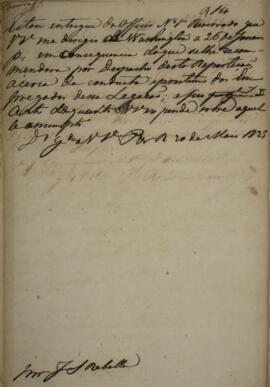 N.º 4
Estou entregue do Officio N.º 1 Reservado que
V. S.ª me dirigio de Washington a 26 de Janei
ro, em consequencia do que se lhe recom
mendara por Despacho desta Repartição
acerca da conducta dos em
pregados dessa Legação; e
de quanto V. S.ª responde sobre aquel
le assumpto.
D. G. de V. S.ª P. do R. 20 de Maio 1825
Snr. J. S. Rebello